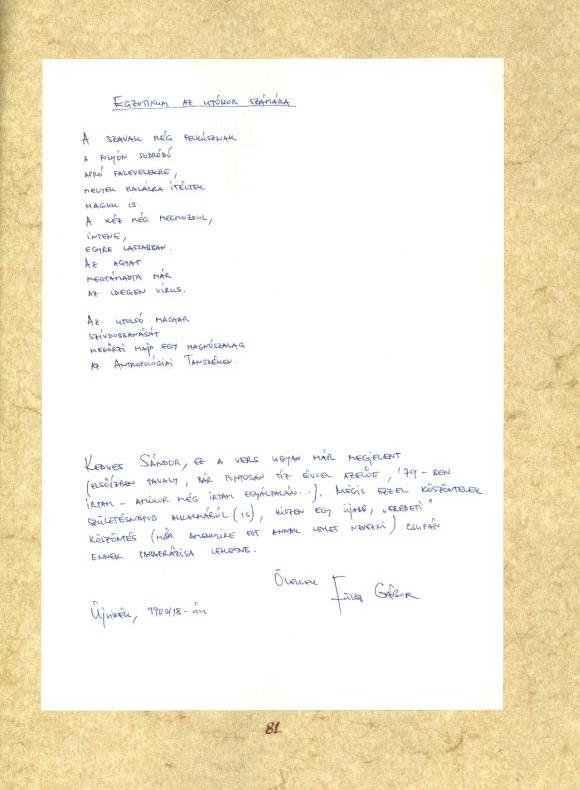 EGZOTIKUM AZ UTÓKOR SZÁMÁRA
A SZAVAK MÉG FELKÚSZNAK
A FOLYÓN SODRÓDÓ
APRÓ FALEVELEKRE,
MELYEK HALÁLRA ÍTÉLTÉK
MAGUK IS.
A KÉZ MÉG MEGMOZDUL,
INTENE,
EGYRE LASSABBAN.
AZ AGYAT
MEGTÁMADTA MÁR
AZ IDEGEN VÍRUS.
AZ UTOLSÓ MAGYAR
SZÍVDOBBANÁSÁT
MEGŐRZI MAJD EGY MAGNÓSZALAG
AZ ANTROPOLÓGIAI TANSZÉKEN.
KEDVES SÁNDOR, EZ A VERS UGYAN MÁR MEGJELENT
(ELSŐÍZBEN TAVALY, BÁR PONTOSAN TÍZ ÉVVEL AZELŐTT, '79-BEN
ÍRTAM – AMIKOR MÉG ÍRTAM EGYÁLTALÁN...). MÉGIS EZZEL KÖSZÖNTELEK
SZÜLETÉSNAPOD ALKALMÁBÓL (IS), HISZEN EGY ÚJABB, „EREDETI"
KÖSZÖNTÉS (MÁR AMENNYIRE EZT ANNAK LEHET NEVEZNI) CSUPÁN
ENNEK PARAFRÁZISA LEHETNE.
ÖLELLEK GÁBOR
ÚJVIDÉK,
81